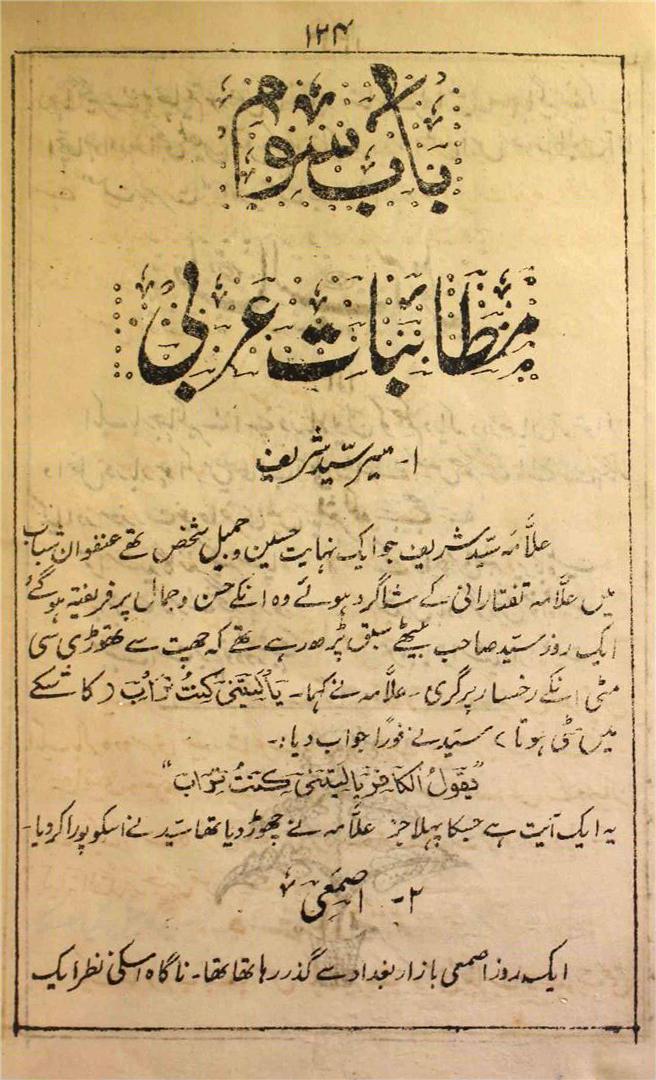 ۱۲۴
باب سوم
مطائبات عربی
۱۔ میر سید شریف
علامہ سید شریف جو ایک نہایت حسین و جمیل شخص تھے عنفوان شباب
میں علامہ تفتارانی کے شاگرد ہوئے وہ انکے حسن و جمال پر فریفتہ ہو گئے
ایک روز سید صاحب بیٹھے سبق پڑھ رہے تھے کہ چھت سے تھوڑی سی
مٹی انکے رخسار پر گری۔ علامہ نے کہا۔ یَا لَیتَنِی کُنتُ تُرَاب (کاشکے
میں مٹی ہوتا) سید نے فوراً جواب دیا:۔
"یَقُولُ الکَافِرُ یَا لَیتَنِی کُنتُ تُرَاب"
یہ ایک آیت ہے جسکا پہلا جز علامہ نے چھوڑ دیا تھا سید نے اسکو پورا کر دیا۔
۲۔ اصمعی
ایک روز اصمعی بازار بغداد سے گذر رہا تھا تھا۔ ناگاہ اسکی نظر ایک